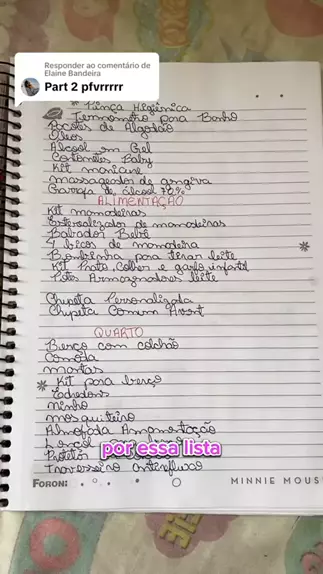 Responder ao comentário de
Elaine Bandeira
Part 2 pfvrrrrr
* Pinça Higiênica
Termometro para Banho
Pacotes de Algodão
Óleos
Álcool em Gel
Cotonetes Baby
Kit manicure
massageador de gengiva
Garrafa de álcool 70%
ALIMENTAÇÃO
Kit mamadeiras
Esterelizador de mamadeiras
Babador Bebê
4 bicos de mamadeira
Bombinha para tirar leite
Kit Prato, Colher e garfo infantil
Potes Armazenadores leite
Chupeta Personalizada
Chupeta Comum Avent
QUARTO
Berço com colchão
Comoda
mantas
* Kit para berço
Edredons
ninho
mosquiteiro
Almofada Amamentação
Lençol
por essa lista
Protetor
Travesseiro antirefluxo
FORONI
MINNIE MOUS